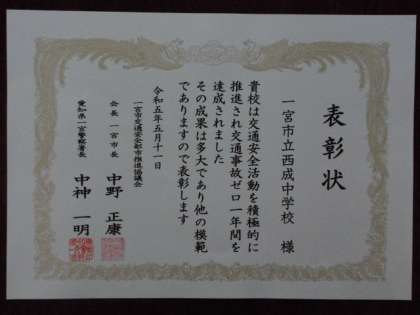 表彰状
一宮市立西成中学校 様
貴校は交通安全活動を積極的に
推進され交通事故ゼロ一年間を
達成されました
その成果は多大であり他の模範
でありますので表彰します
令和五年五月十一日
一宮市交通安全都市推進協議会
会長 一宮市長 中野 正康
愛知県一宮警察署長 中神 一明